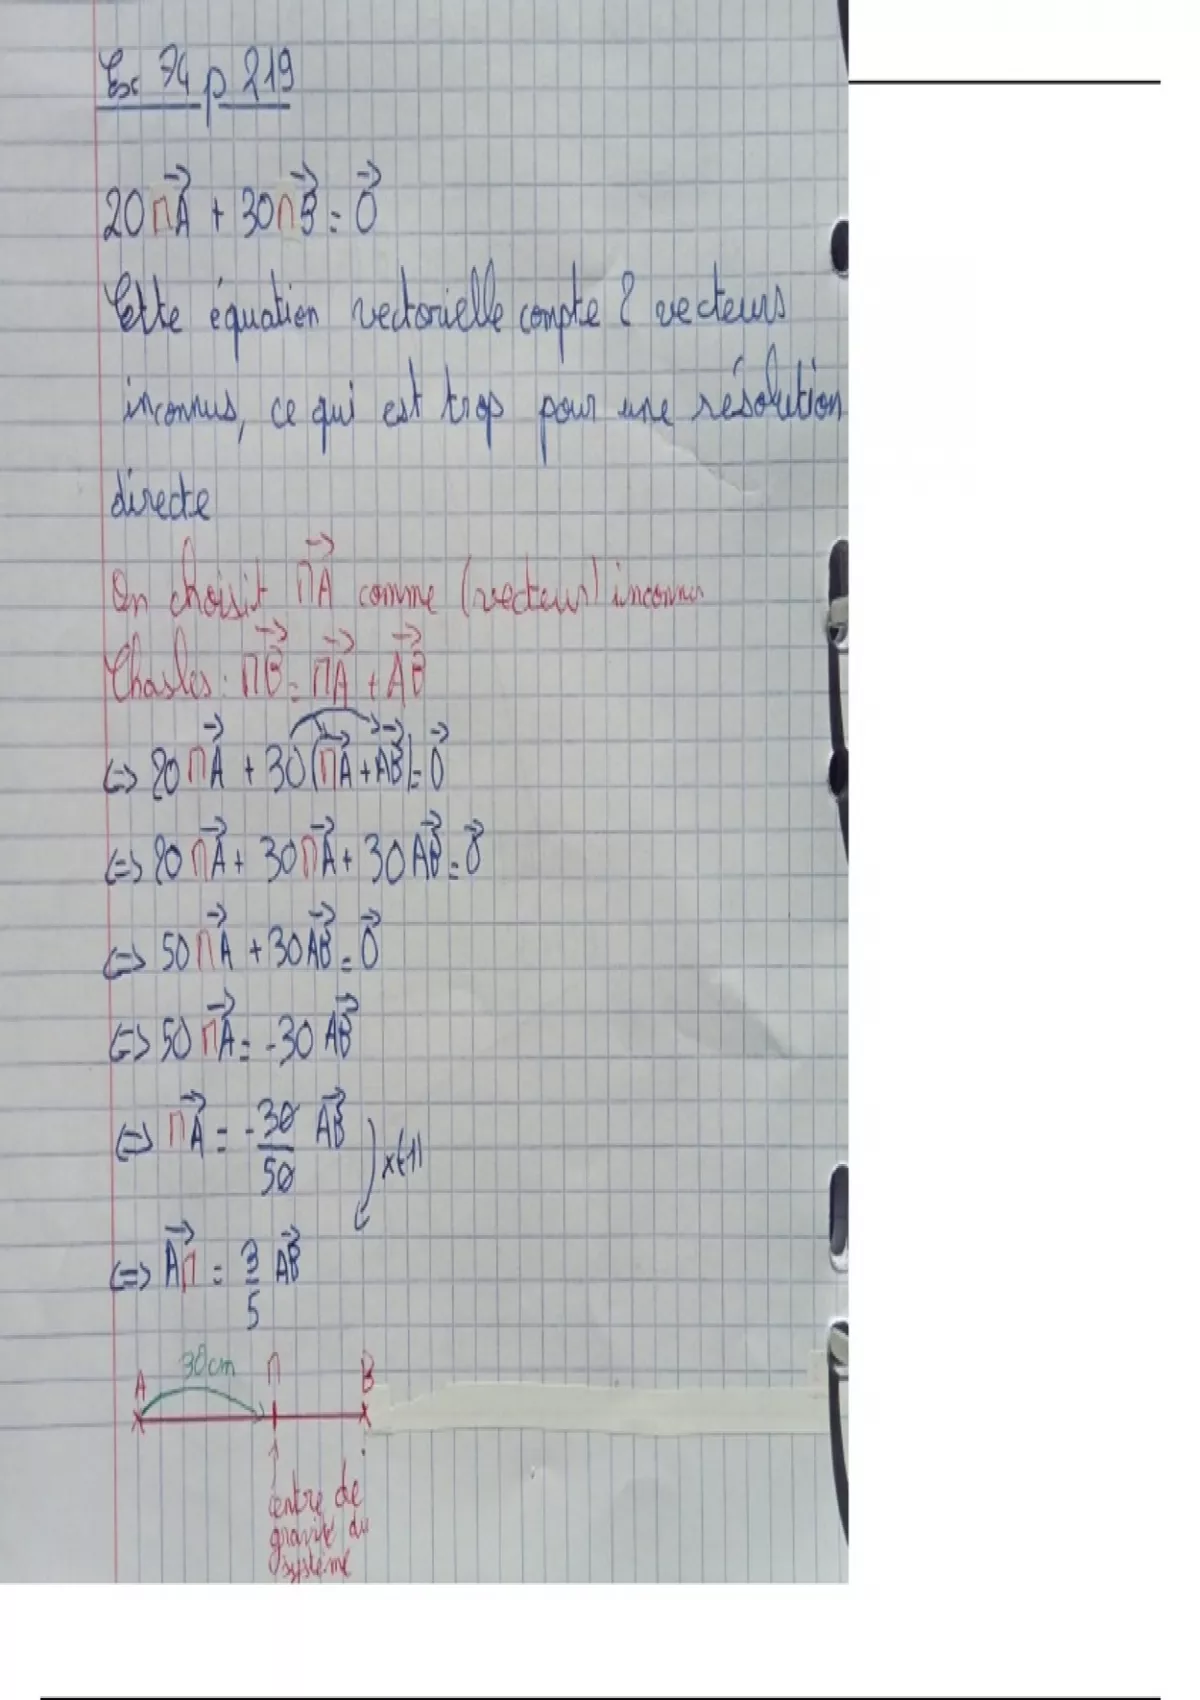 Ex 74 p 219
20MA⃗ + 30MB⃗ = 0⃗
Cette équation vectorielle compte 2 vecteurs
inconnus, ce qui est trop pour une résolution
directe
On choisit MA⃗ comme (vecteur) inconnu
Chasles : MB⃗ = MA⃗ + AB⃗
<=> 20 MA⃗ + 30(MA⃗ + AB⃗) = 0⃗
<=> 20 MA⃗ + 30MA⃗ + 30AB⃗ = 0⃗
<=> 50MA⃗ + 30AB⃗ = 0⃗
<=> 50 MA⃗ = -30 AB⃗
<=> MA⃗ = -30/50 AB⃗
x(-1)
<=> AM⃗ = 3/5 AB⃗
A 30cm M B
centre de
gravité du
système